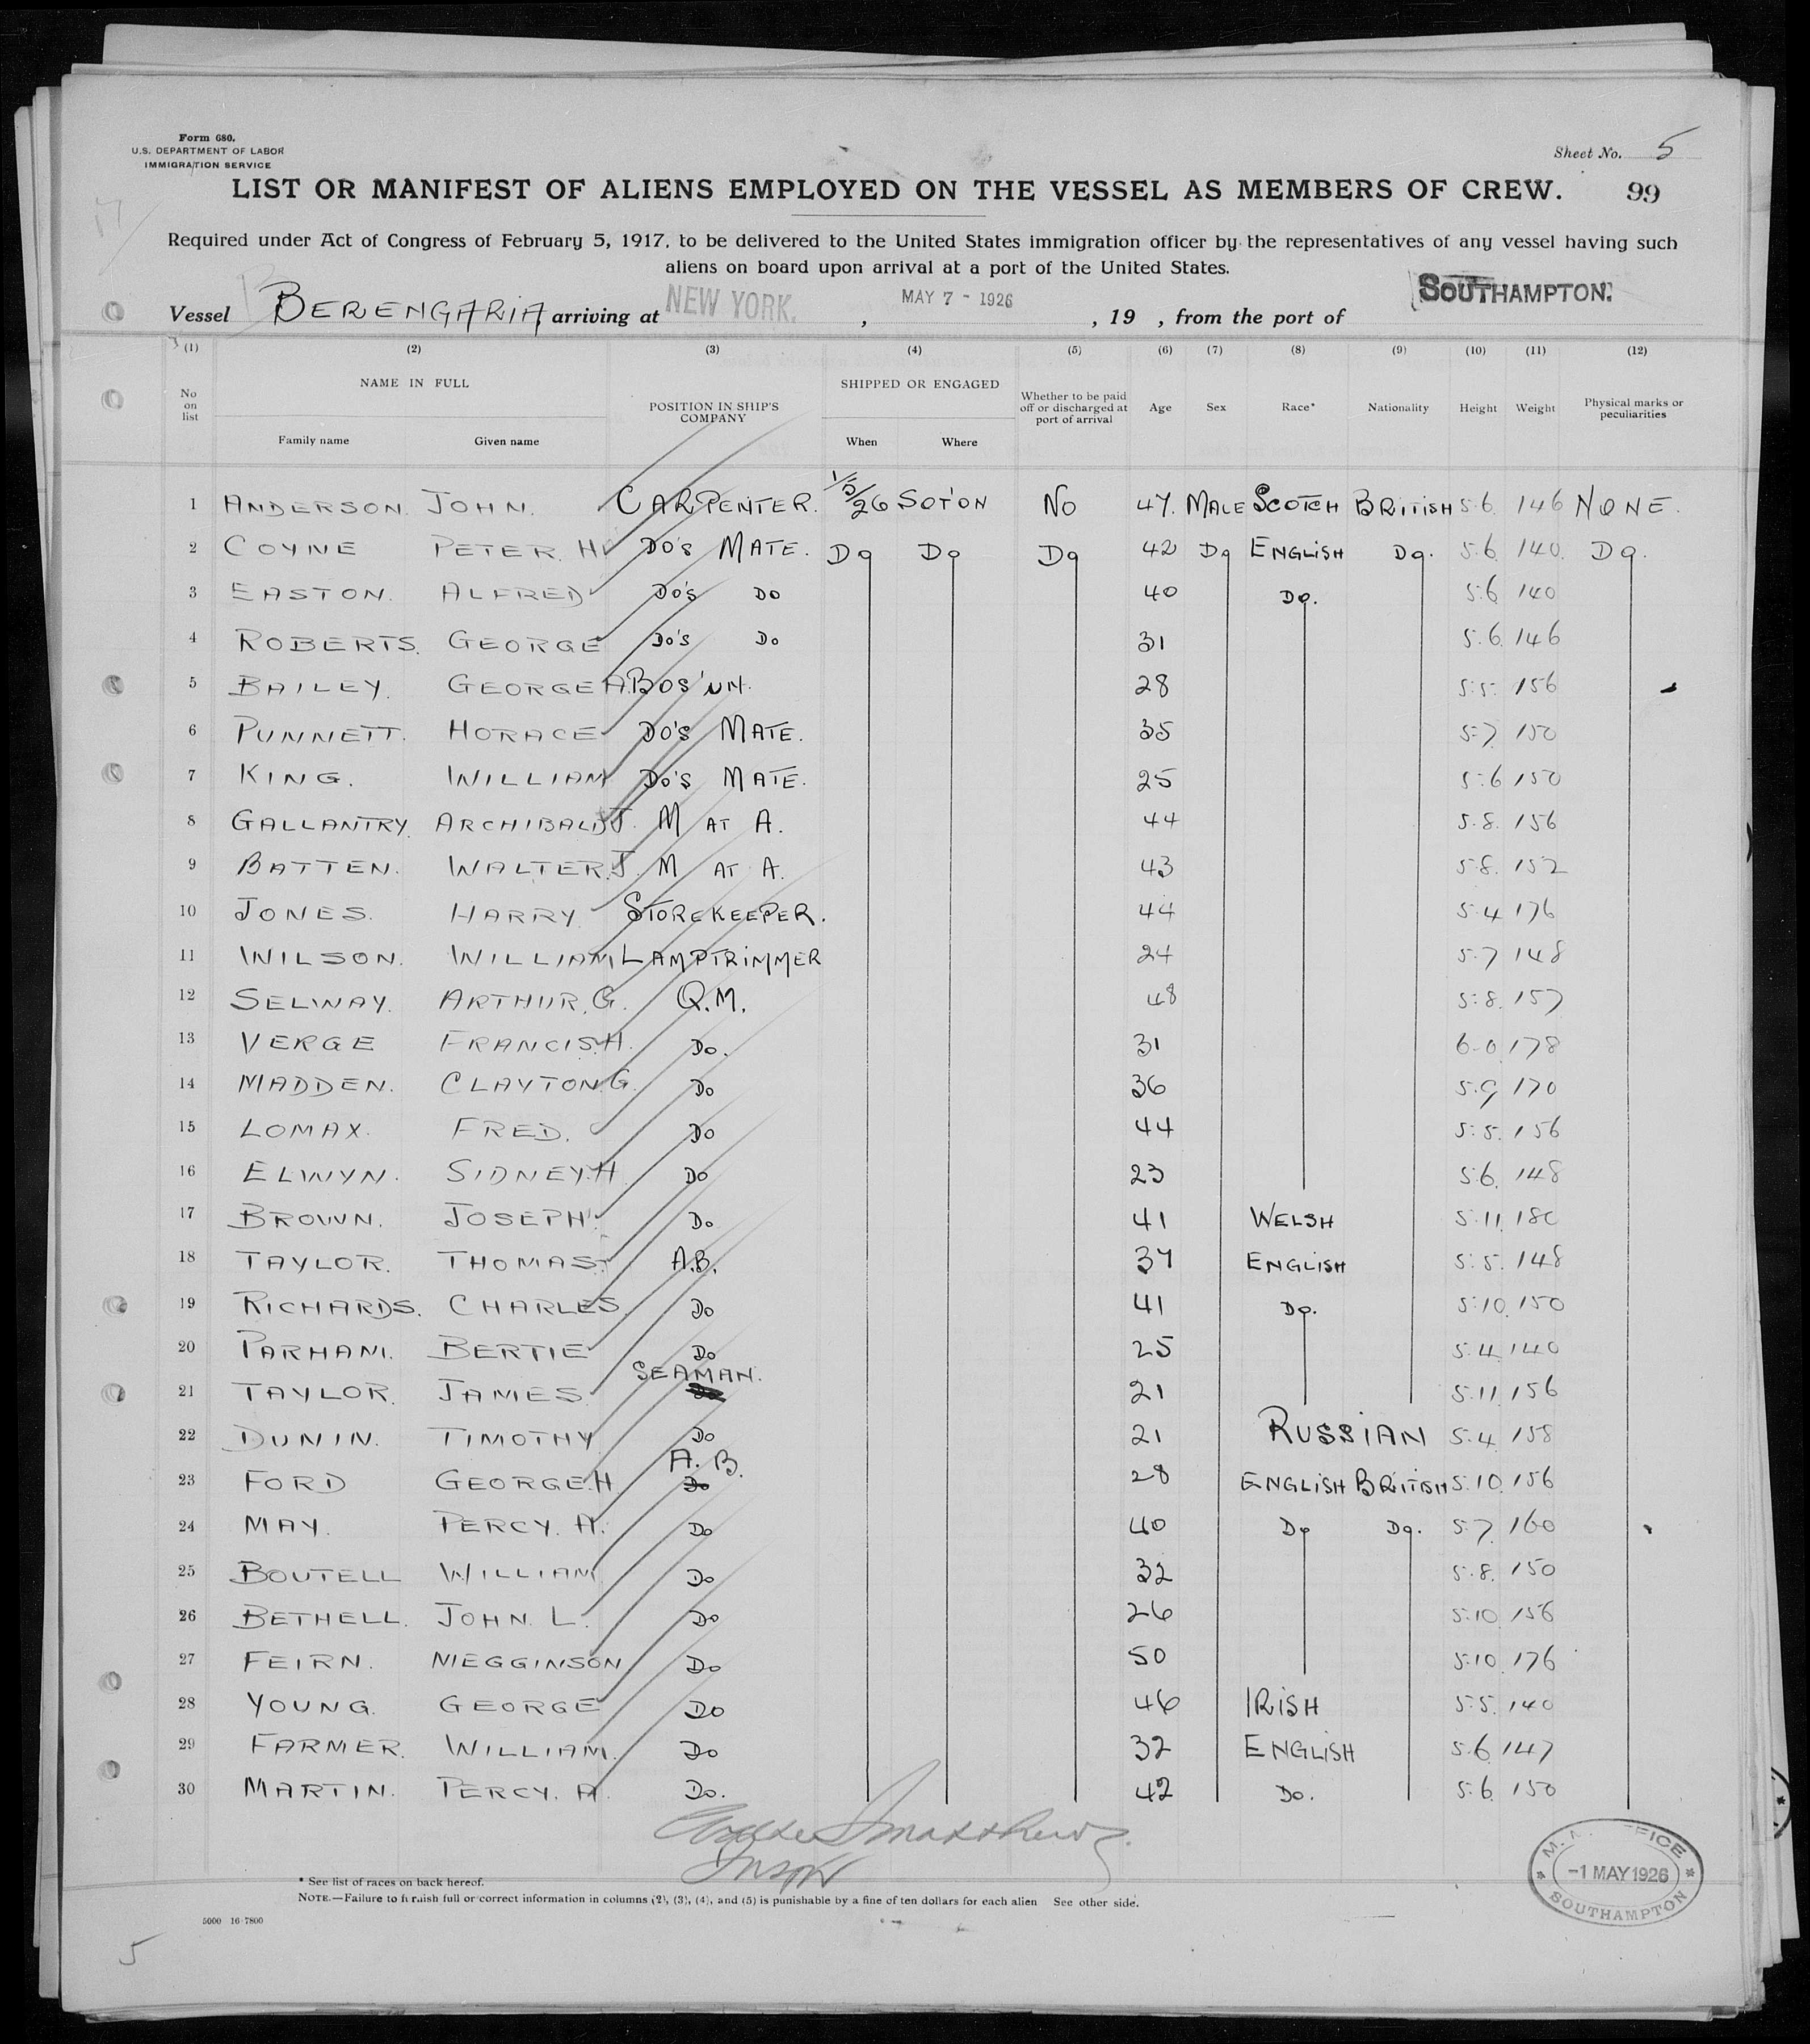 Form 680.
U.S. DEPARTMENT OF LABOR
IMMIGRATION SERVICE
Sheet No. 5
LIST OR MANIFEST OF ALIENS EMPLOYED ON THE VESSEL AS MEMBERS OF CREW. 99
Required under Act of Congress of February 5, 1917, to be delivered to the United States immigration officer by the representatives of any vessel having such
aliens on board upon arrival at a port of the United States.
Vessel BERENGARIA, arriving at NEW YORK. , MAY 7 - 1926 , 19 , from the port of SOUTHAMPTON.
(1) (2) (3) (4) (5) (6) (7) (8) (9) (10) (11) (12)
No on list NAME IN FULL Family name Given name POSITION IN SHIP'S COMPANY SHIPPED OR ENGAGED When Where Whether to be paid off or discharged at port of arrival Age Sex Race* Nationality Height Weight Physical marks or peculiarities
1 ANDERSON. JOHN. CARPENTER. 1/5/26 SOT'ON NO 47. MALE SCOTCH BRITISH 5.6. 146 NONE.
2 COYNE PETER. H. DO'S MATE. DO DO DO 42 DO ENGLISH DO. 5.6 140. DO.
3 EASTON. ALFRED DO'S DO 40 DO. 5.6 140
4 ROBERTS. GEORGE DO'S DO 31 5.6. 146
5 BAILEY. GEORGE A. BOS'UN. 28 5.5. 156
6 PUNNETT. HORACE DO'S MATE. 35 5.7. 150
7 KING. WILLIAM DO'S MATE. 25 5.6 150
8 GALLANTRY. ARCHIBALD J. M AT A. 44 5.8. 156
9 BATTEN. WALTER. J. M AT A. 43 5.8. 152
10 JONES. HARRY STOREKEEPER. 44 5.4 176
11 WILSON. WILLIAM LAMPTRIMMER 24 5.7 148
12 SELWAY. ARTHUR. G. Q.M. 48 5.8. 157
13 VERGE FRANCIS. H. DO. 31 6-0 178
14 MADDEN. CLAYTON. G. DO 36 5.9 170
15 LOMAX. FRED. DO 44 5.5. 156
16 ELWYN. SIDNEY. H DO 23 5.6. 148
17 BROWN. JOSEPH. DO 41 WELSH 5.11. 180
18 TAYLOR. THOMAS. A.B. 37 ENGLISH 5.5. 148
19 RICHARDS. CHARLES. DO 41 DO. 5.10. 150
20 PARHAM. BERTIE DO 25 5.4 140
21 TAYLOR. JAMES. SEAMAN. 21 5.11. 156
22 DUNIN. TIMOTHY DO 21 RUSSIAN 5.4. 158
23 FORD GEORGE. H A. B. DO 28 ENGLISH BRITISH 5.10. 156
24 MAY. PERCY. A. DO 40 DO DO. 5.7. 160
25 BOUTELL WILLIAM DO 32 5.8. 150
26 BETHELL. JOHN. L. DO 26 5.10 156
27 FEIRN. MEGGINSON DO 50 5.10. 176
28 YOUNG. GEORGE DO 46 IRISH 5.5. 140
29 FARMER. WILLIAM. DO 32 ENGLISH 5.6. 147
30 MARTIN. PERCY. A. DO. 42 DO. 5.6. 150
* See list of races on back hereof.
NOTE.—Failure to furnish full or correct information in columns (2), (3), (4), and (5) is punishable by a fine of ten dollars for each alien See other side.
5000 16-7800
-1 MAY 1926
SOUTHAMPTON
5